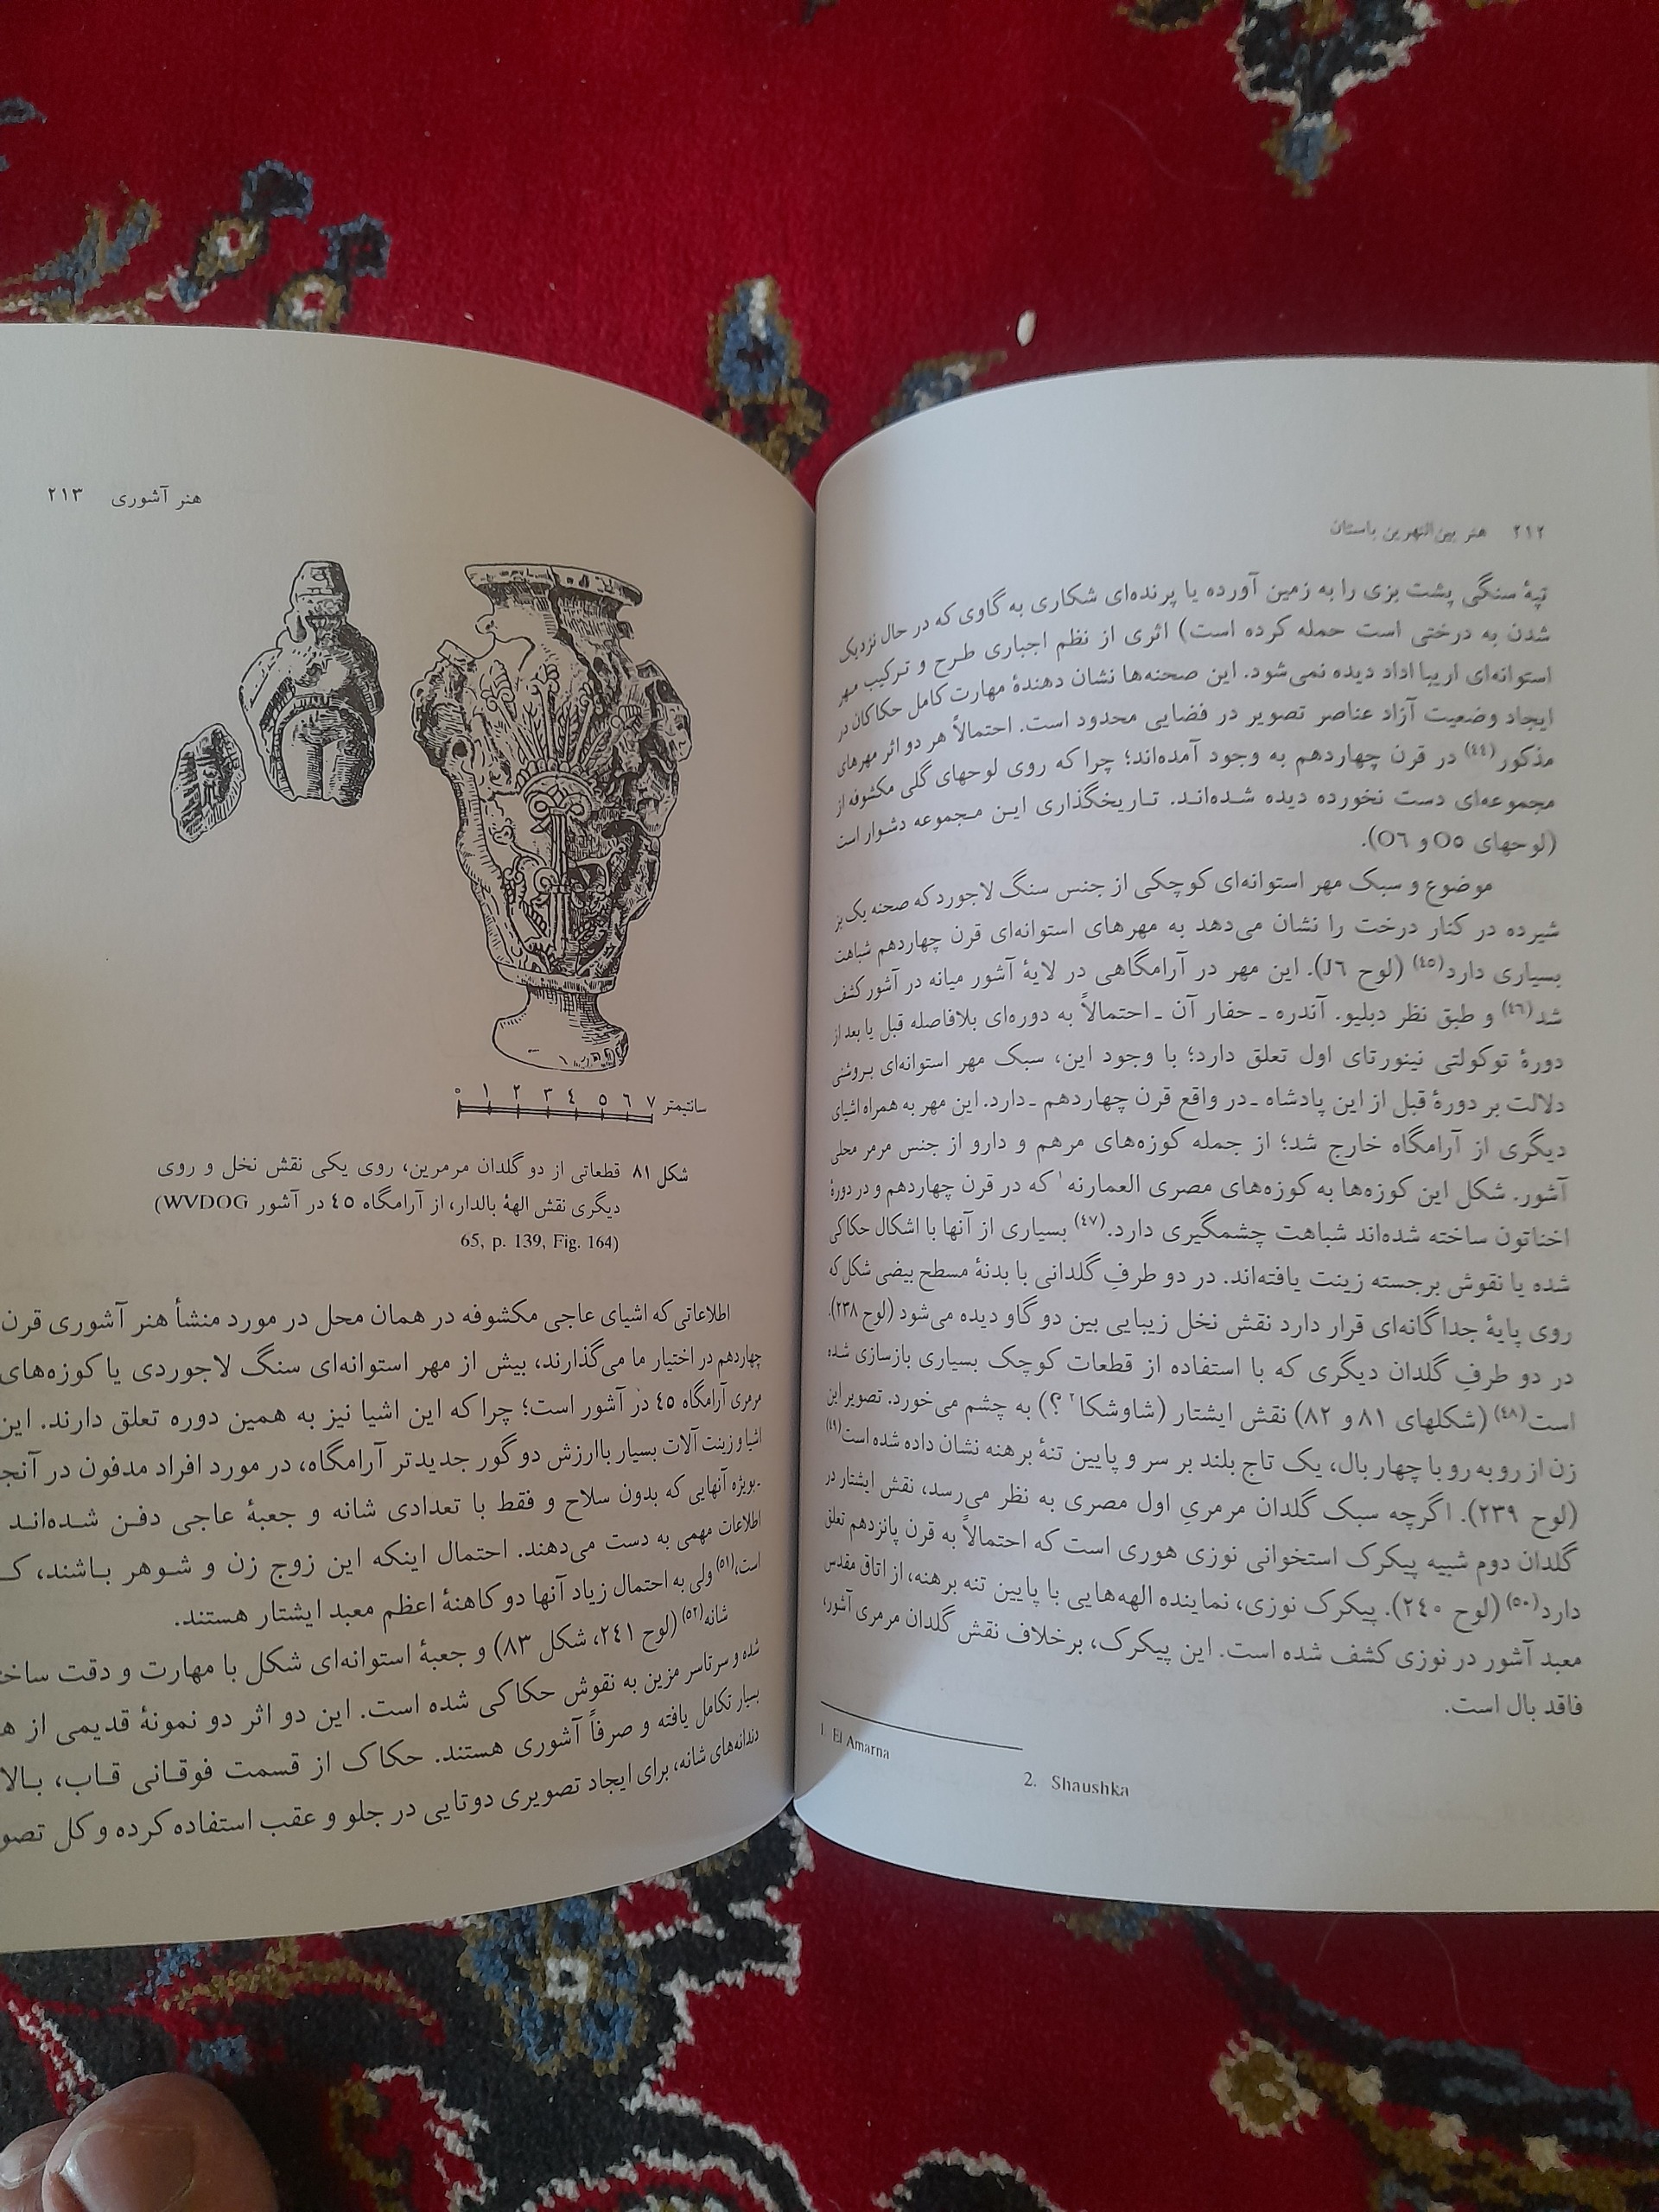 ۲۱۲ هنر بین‌النهرین باستان
تپهٔ سنگی پشت بزی را به زمین آورده یا پرنده‌ای شکاری به گاوی که در حال نزدیک
شدن به درختی است حمله کرده است) اثری از نظم اجباری طرح و ترکیب مهر
استوانه‌ای اریبا اداد دیده نمی‌شود. این صحنه‌ها نشان دهندهٔ مهارت کامل حکاکان در
ایجاد وضعیت آزاد عناصر تصویر در فضایی محدود است. احتمالاً هر دو اثر مهرهای
مذکور(٤٤) در قرن چهاردهم به وجود آمده‌اند؛ چرا که روی لوحهای گلی مکشوفه از
مجموعه‌ای دست نخورده دیده شده‌اند. تاریخگذاری این مجموعه دشوار است
(لوحهای O٥ و O٦).
موضوع و سبک مهر استوانه‌ای کوچکی از جنس سنگ لاجورد که صحنه یک بز
شیرده در کنار درخت را نشان می‌دهد به مهرهای استوانه‌ای قرن چهاردهم شباهت
بسیاری دارد(٤٥) (لوح J٦). این مهر در آرامگاهی در لایهٔ آشور میانه در آشور کشف
شد(٤٦) و طبق نظر دبلیو. آندره ـ حفار آن ـ احتمالاً به دوره‌ای بلافاصله قبل یا بعد از
دورهٔ توکولتی نینورتای اول تعلق دارد؛ با وجود این، سبک مهر استوانه‌ای بروشنی
دلالت بر دورهٔ قبل از این پادشاه ـ در واقع قرن چهاردهم ـ دارد. این مهر به همراه اشیای
دیگری از آرامگاه خارج شد؛ از جمله کوزه‌های مرهم و دارو از جنس مرمر محلی
آشور. شکل این کوزه‌ها به کوزه‌های مصری العمارنه۱ که در قرن چهاردهم و در دورهٔ
اخناتون ساخته شده‌اند شباهت چشمگیری دارد.(٤٧) بسیاری از آنها با اشکال حکاکی
شده یا نقوش برجسته زینت یافته‌اند. در دو طرفِ گلدانی با بدنهٔ مسطح بیضی شکل که
روی پایهٔ جداگانه‌ای قرار دارد نقش نخل زیبایی بین دو گاو دیده می‌شود (لوح ۲۳۸).
در دو طرفِ گلدان دیگری که با استفاده از قطعات کوچک بسیاری بازسازی شده
است(٤٨) (شکلهای ۸۱ و ۸۲) نقش ایشتار (شاوشکا۲ ؟) به چشم می‌خورد. تصویر این
زن از رو به رو با چهار بال، یک تاج بلند بر سر و پایین تنهٔ برهنه نشان داده شده است(٤٩)
(لوح ۲۳۹). اگرچه سبک گلدان مرمریِ اول مصری به نظر می‌رسد، نقش ایشتار در
گلدان دوم شبیه پیکرک استخوانی نوزی هوری است که احتمالاً به قرن پانزدهم تعلق
دارد(٥٠) (لوح ۲٤۰). پیکرک نوزی، نماینده الهه‌هایی با پایین تنه برهنه، از اتاق مقدس
معبد آشور در نوزی کشف شده است. این پیکرک، برخلاف نقش گلدان مرمری آشور،
فاقد بال است.
1. El Amarna
2. Shaushka
هنر آشوری ۲۱۳
۰ ۱ ۲ ۳ ٤ ٥ ٦ ۷ سانتیمتر
شکل ۸۱ قطعاتی از دو گلدان مرمرین، روی یکی نقش نخل و روی
دیگری نقش الههٔ بالدار، از آرامگاه ٤٥ در آشور WVDOG)
65, p. 139, Fig. 164)
اطلاعاتی که اشیای عاجی مکشوفه در همان محل در مورد منشأ هنر آشوری قرن
چهاردهم در اختیار ما می‌گذارند، بیش از مهر استوانه‌ای سنگ لاجوردی یا کوزه‌های
مرمری آرامگاه ٤٥ در آشور است؛ چرا که این اشیا نیز به همین دوره تعلق دارند. این
اشیا و زینت آلات بسیار باارزش دو گور جدیدتر آرامگاه، در مورد افراد مدفون در
ـ بویژه آنهایی که بدون سلاح و فقط با تعدادی شانه و جعبهٔ عاجی دفن شده‌اند
اطلاعات مهمی به دست می‌دهند. احتمال اینکه این زوج زن و شوهر باشند،
است،(٥١) ولی به احتمال زیاد آنها دو کاهنهٔ اعظم معبد ایشتار هستند.
شانه(٥٢) (لوح ۲٤۱، شکل ۸۳) و جعبهٔ استوانه‌ای شکل با مهارت و دقت
شده و سرتاسر مزین به نقوش حکاکی شده است. این دو اثر دو نمونهٔ قدیمی از
بسیار تکامل یافته و صرفاً آشوری هستند. حکاک از قسمت فوقانی قاب،
دندانه‌های شانه، برای ایجاد تصویری دوتایی در جلو و عقب استفاده کرده و کل